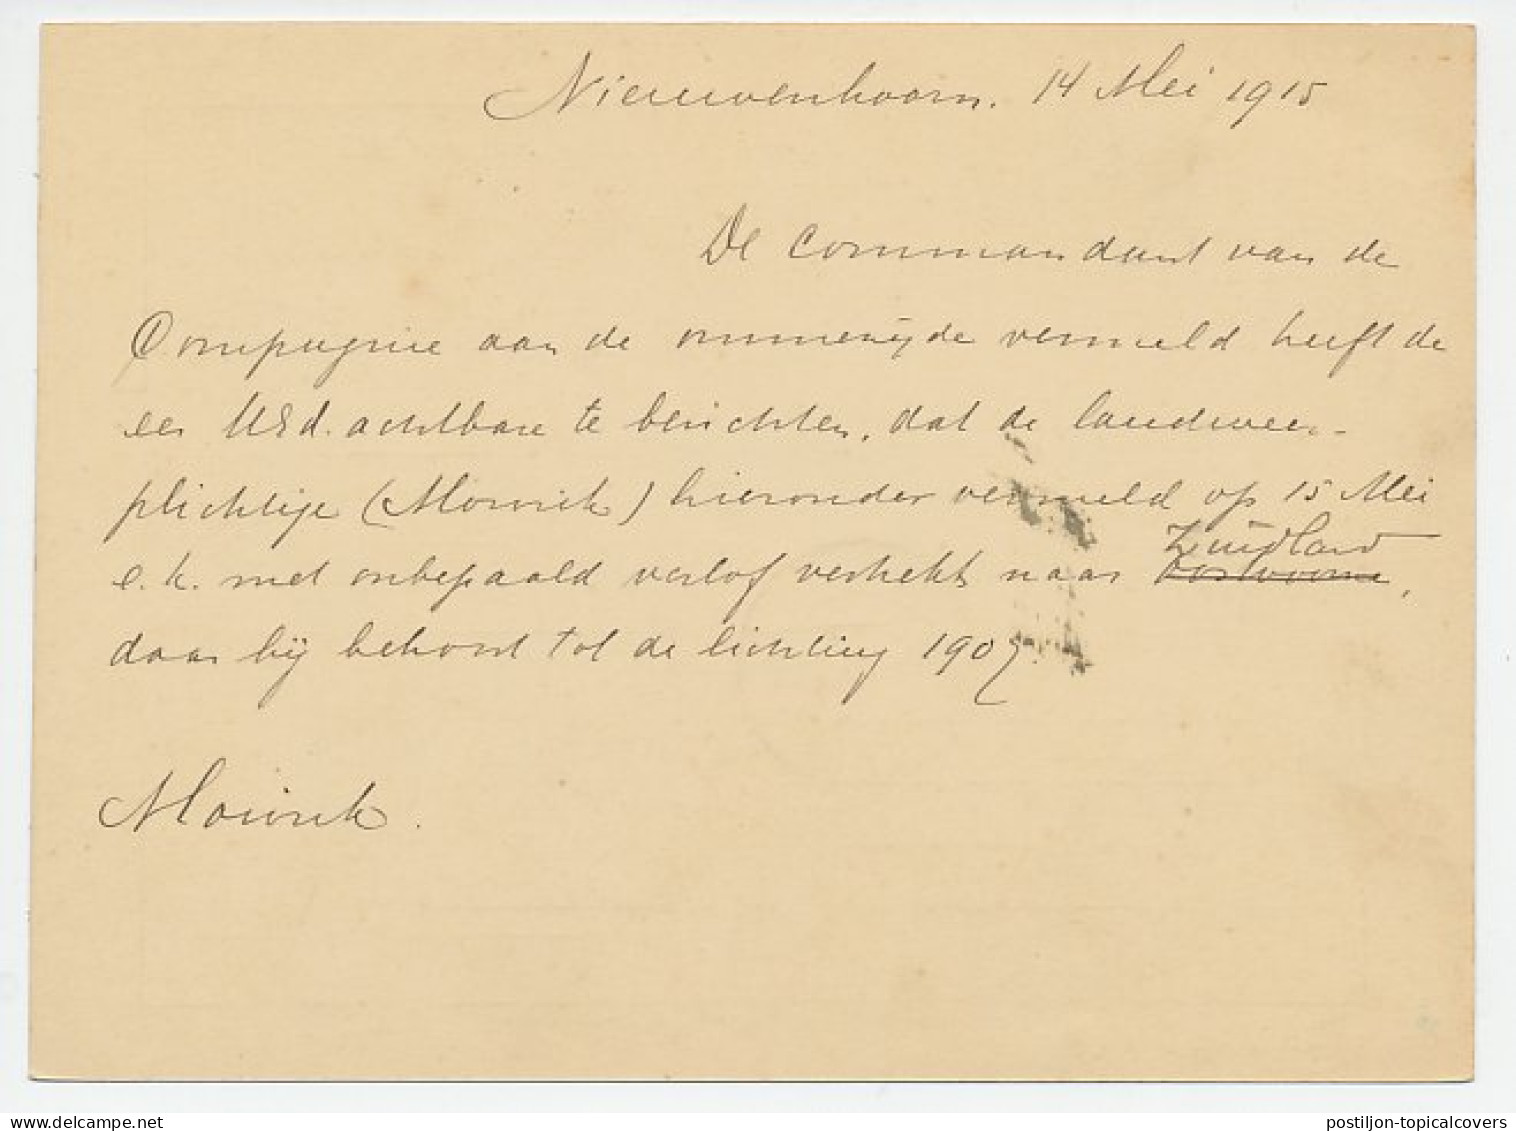 Nieuwenhoorn. 14 Mei 1915
De Commandant van de
Compagnie aan de ommezijde vermeld heeft de
eer UEd. achtbare te berichten, dat de landweer-
plichtige (Mourik) hieronder vermeld op 15 Mei
Zuidland
e.k. met onbepaald verlof vertrekt naar Oostvoorne,
daar hij behoort tot de lichting 1907.
Mourik.
postiljon-topicalcovers